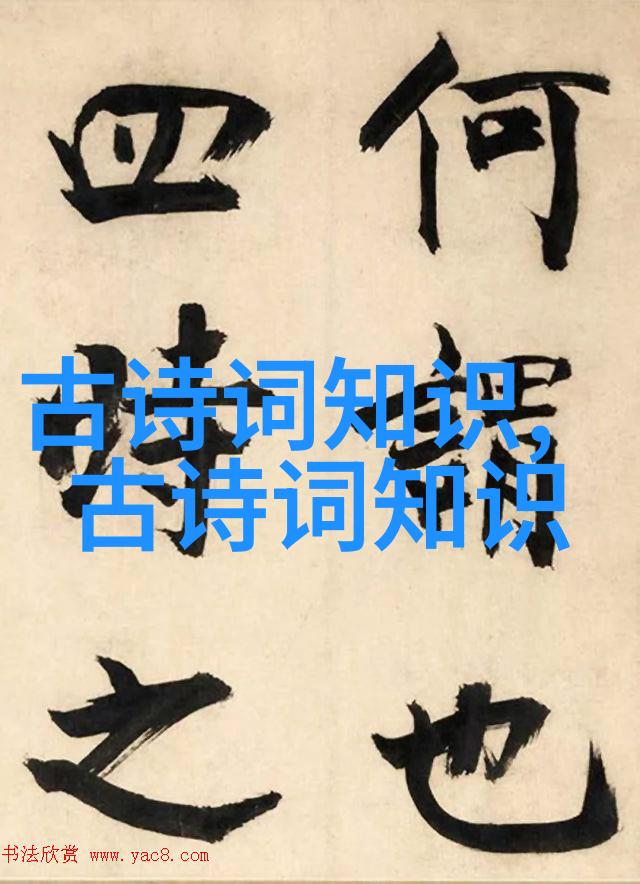 何謂也
四時之
古诗词知识,
古诗词知识
书法欣赏 www.yac8.com